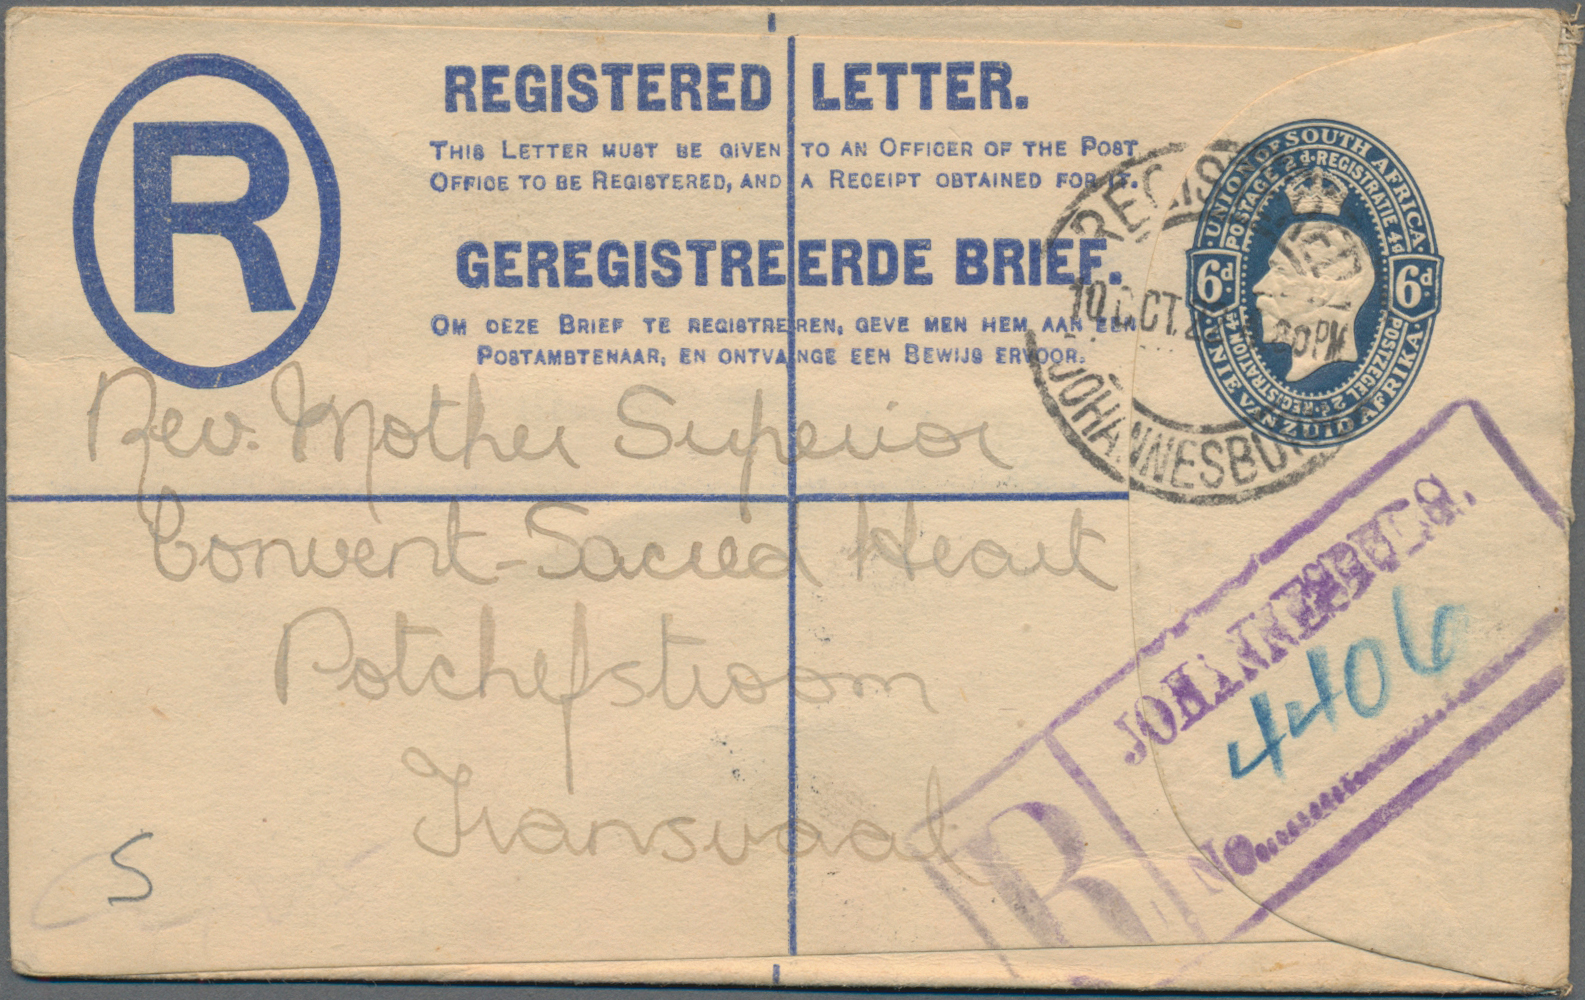 R
REGISTERED LETTER.
THIS LETTER MUST BE GIVEN TO AN OFFICER OF THE POST
OFFICE TO BE REGISTERED, AND A RECEIPT OBTAINED FOR IT.
GEREGISTREERDE BRIEF.
OM DEZE BRIEF TE REGISTREREN, GEVE MEN HEM AAN EEN
POSTAMBTENAAR, EN ONTVANGE EEN BEWIJS ERVOOR.
UNION OF SOUTH AFRICA
POSTAGE 2d. REGISTRATIE 4d
6d. 6d.
POSTZEGEL 2d. REGISTRATION 4d.
UNIE VAN ZUID AFRIKA
10 OCT
PM
JOHANNESBU
Rev. Mother Superior
Convent-Sacred Heart
Potchefstroom
Transvaal
S
JOHANNESBURG.
4406
R
NO